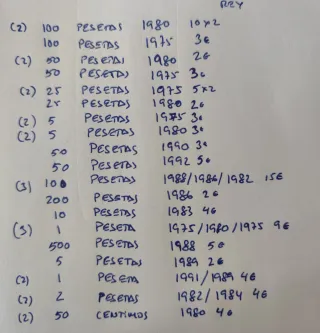 REY
(2) 100 PESETAS 1980 10x2
100 PESETAS 1975 3€
(2) 50 PESETAS 1980 2€
50 PESETAS 1975 3€
(2) 25 PESETAS 1975 5x2
25 PESETAS 1980 2€
(2) 5 PESETAS 1975 3€
(2) 5 PESETAS 1980 3€
50 PESETAS 1990 3€
50 PESETAS 1992 5€
(3) 100 PESETAS 1988/1986/1982 15€
200 PESETAS 1986 2€
10 PESETAS 1983 4€
(3) 1 PESETA 1975/1980/1975 9€
500 PESETAS 1988 5€
5 PESETAS 1989 2€
(2) 1 PESETA 1991/1989 4€
(2) 2 PESETAS 1982/1984 4€
(2) 50 CENTIMOS 1980 4€